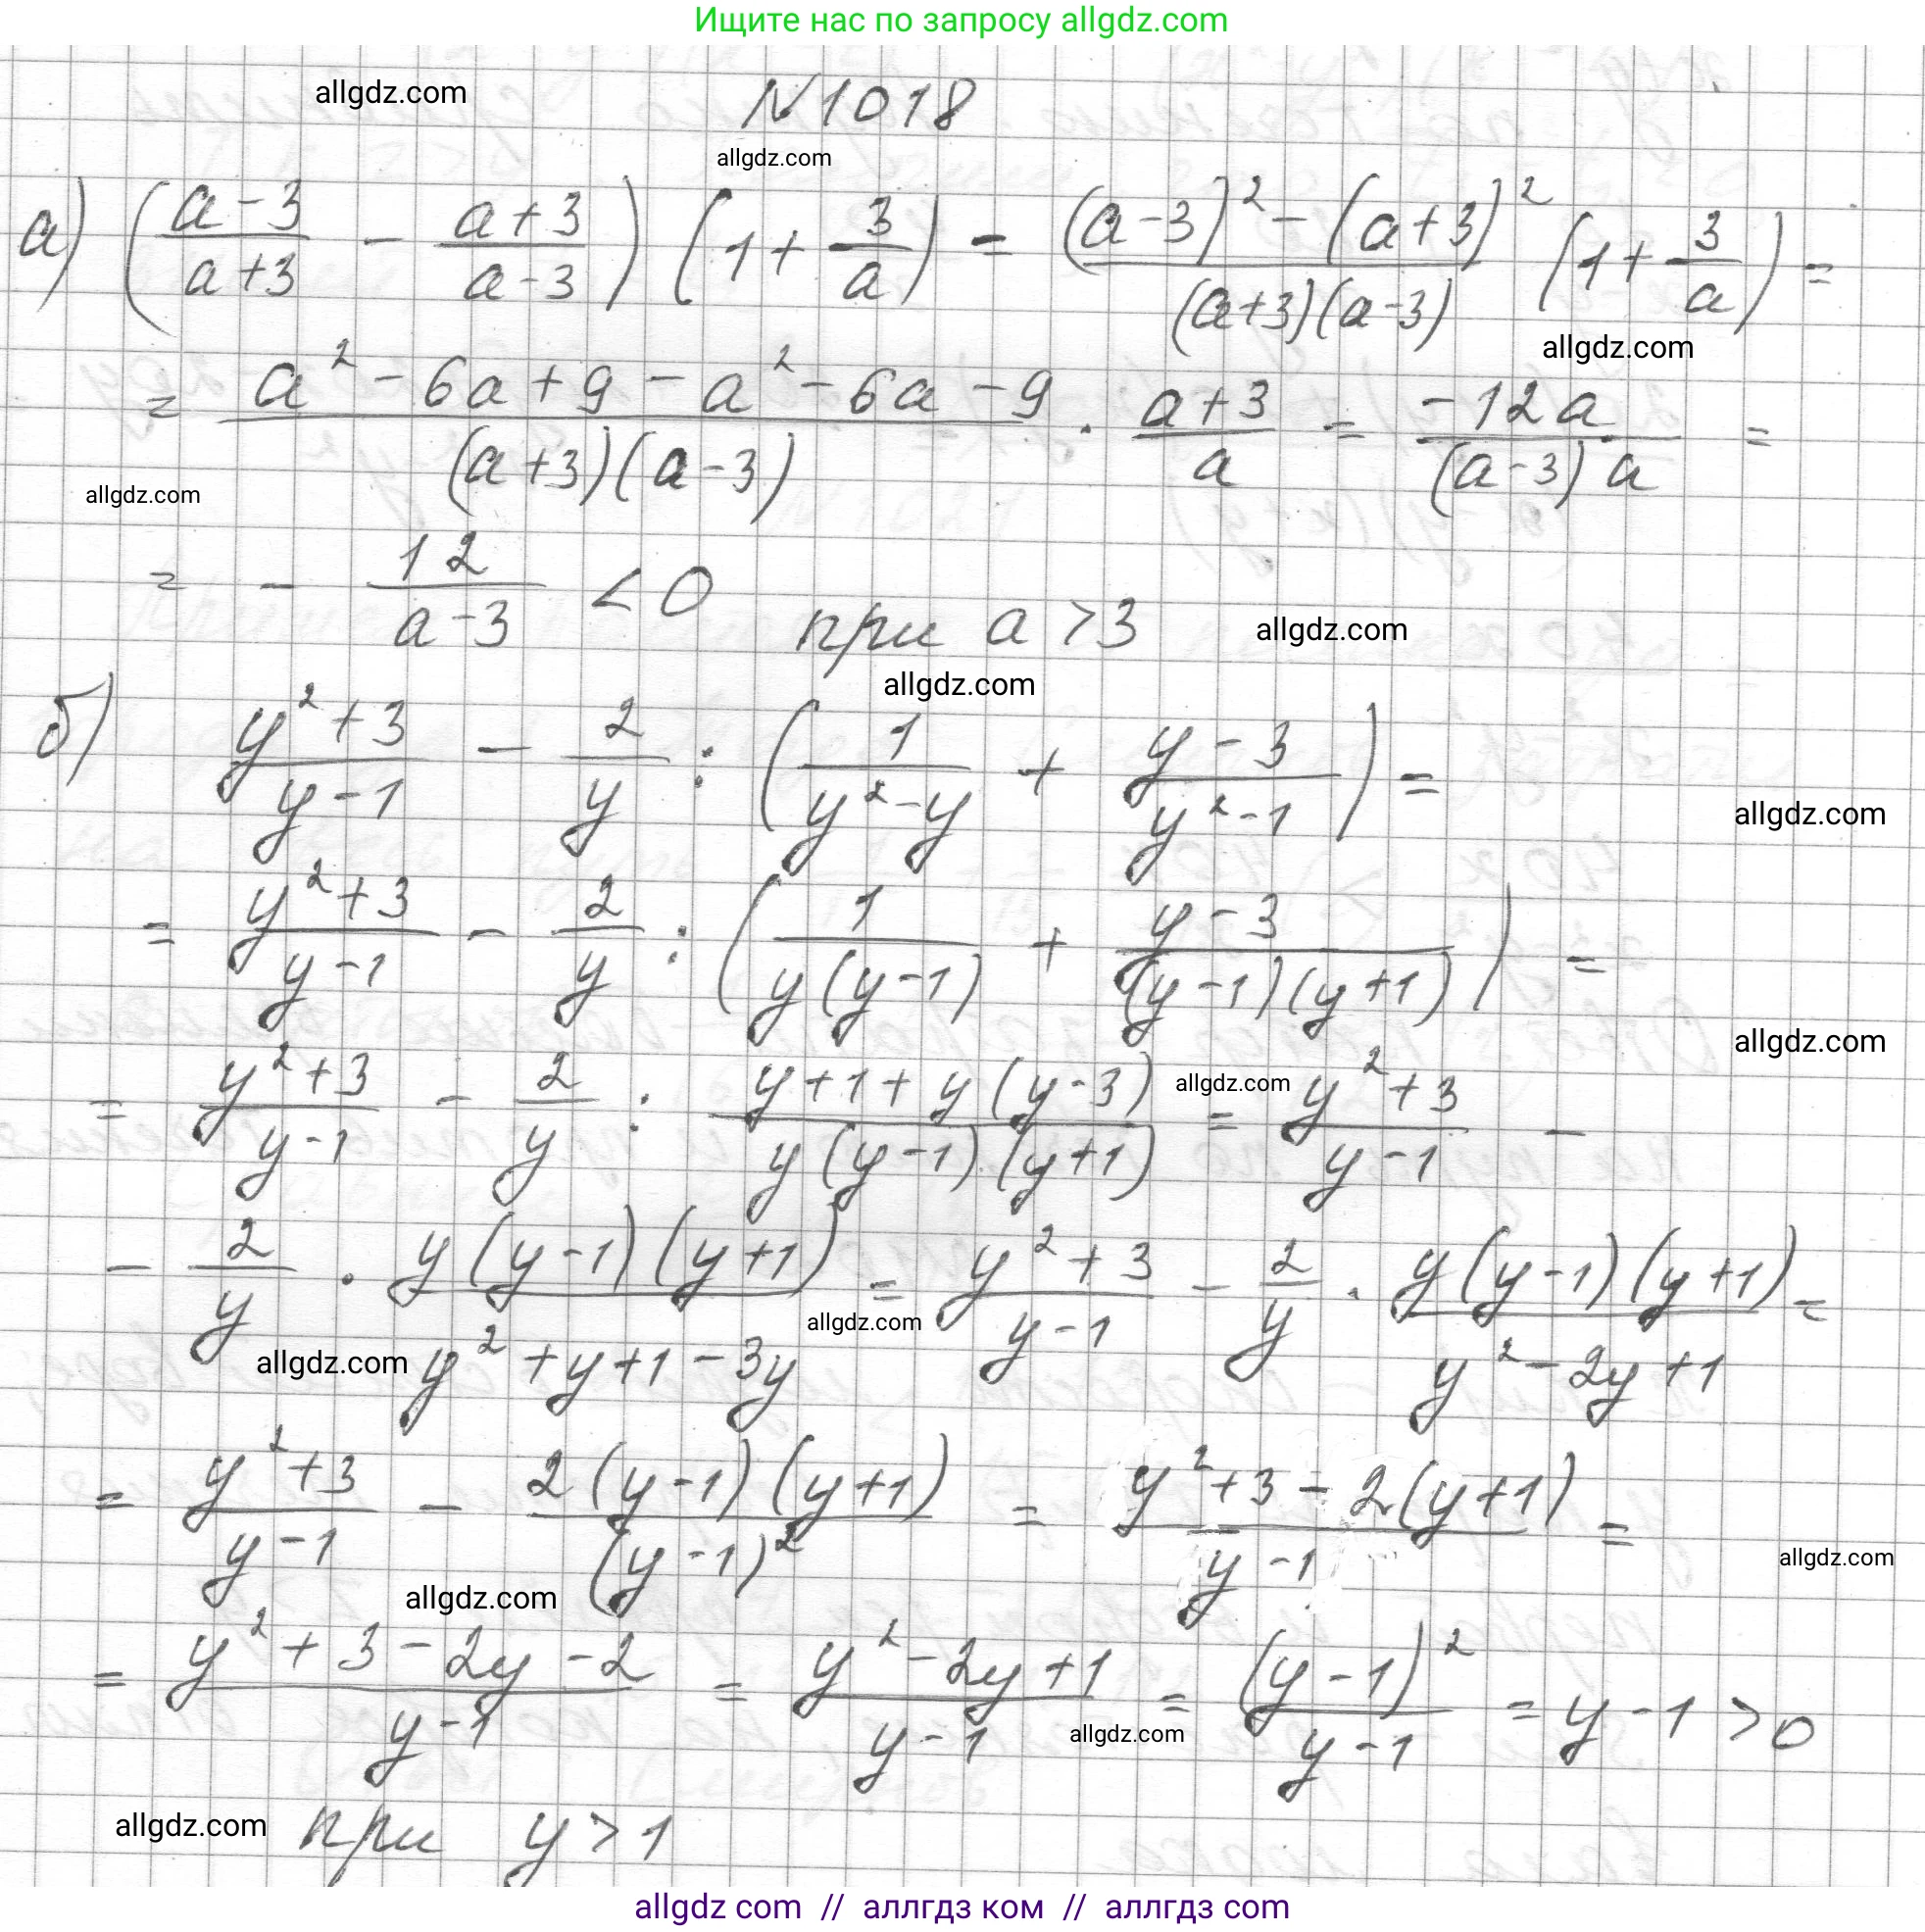 Ищите нас по запросу allgdz.com
allgdz.com
N 1018
allgdz.com
а) ((a-3)/(a+3) - (a+3)/(a-3)) (1 + 3/a) = ((a-3)² - (a+3)²)/((a+3)(a-3)) (1 + 3/a) =
allgdz.com
= (a² - 6a + 9 - a² - 6a - 9)/((a+3)(a-3)) · (a+3)/a = (-12a)/((a-3)a) =
allgdz.com
= - 12/(a-3) < 0 при a > 3
allgdz.com
allgdz.com
б) (y²+3)/(y-1) - 2/y : (1/(y²-y) + (y-3)/(y²-1)) =
allgdz.com
= (y²+3)/(y-1) - 2/y : (1/(y(y-1)) + (y-3)/((y-1)(y+1))) =
allgdz.com
= (y²+3)/(y-1) - 2/y : (y+1+y(y-3))/(y(y-1)(y+1)) = (y²+3)/(y-1) -
allgdz.com
- 2/y · (y(y-1)(y+1))/(y²+y+1-3y) = (y²+3)/(y-1) - 2/y · (y(y-1)(y+1))/(y²-2y+1) =
allgdz.com
allgdz.com
= (y²+3)/(y-1) - (2(y-1)(y+1))/((y-1)²) = (y²+3-2(y+1))/(y-1) =
allgdz.com
allgdz.com
= (y²+3-2y-2)/(y-1) = (y²-2y+1)/(y-1) = ((y-1)²)/(y-1) = y-1 > 0
allgdz.com
allgdz.com
при y > 1
allgdz com // аллгдз ком // аллгдз com